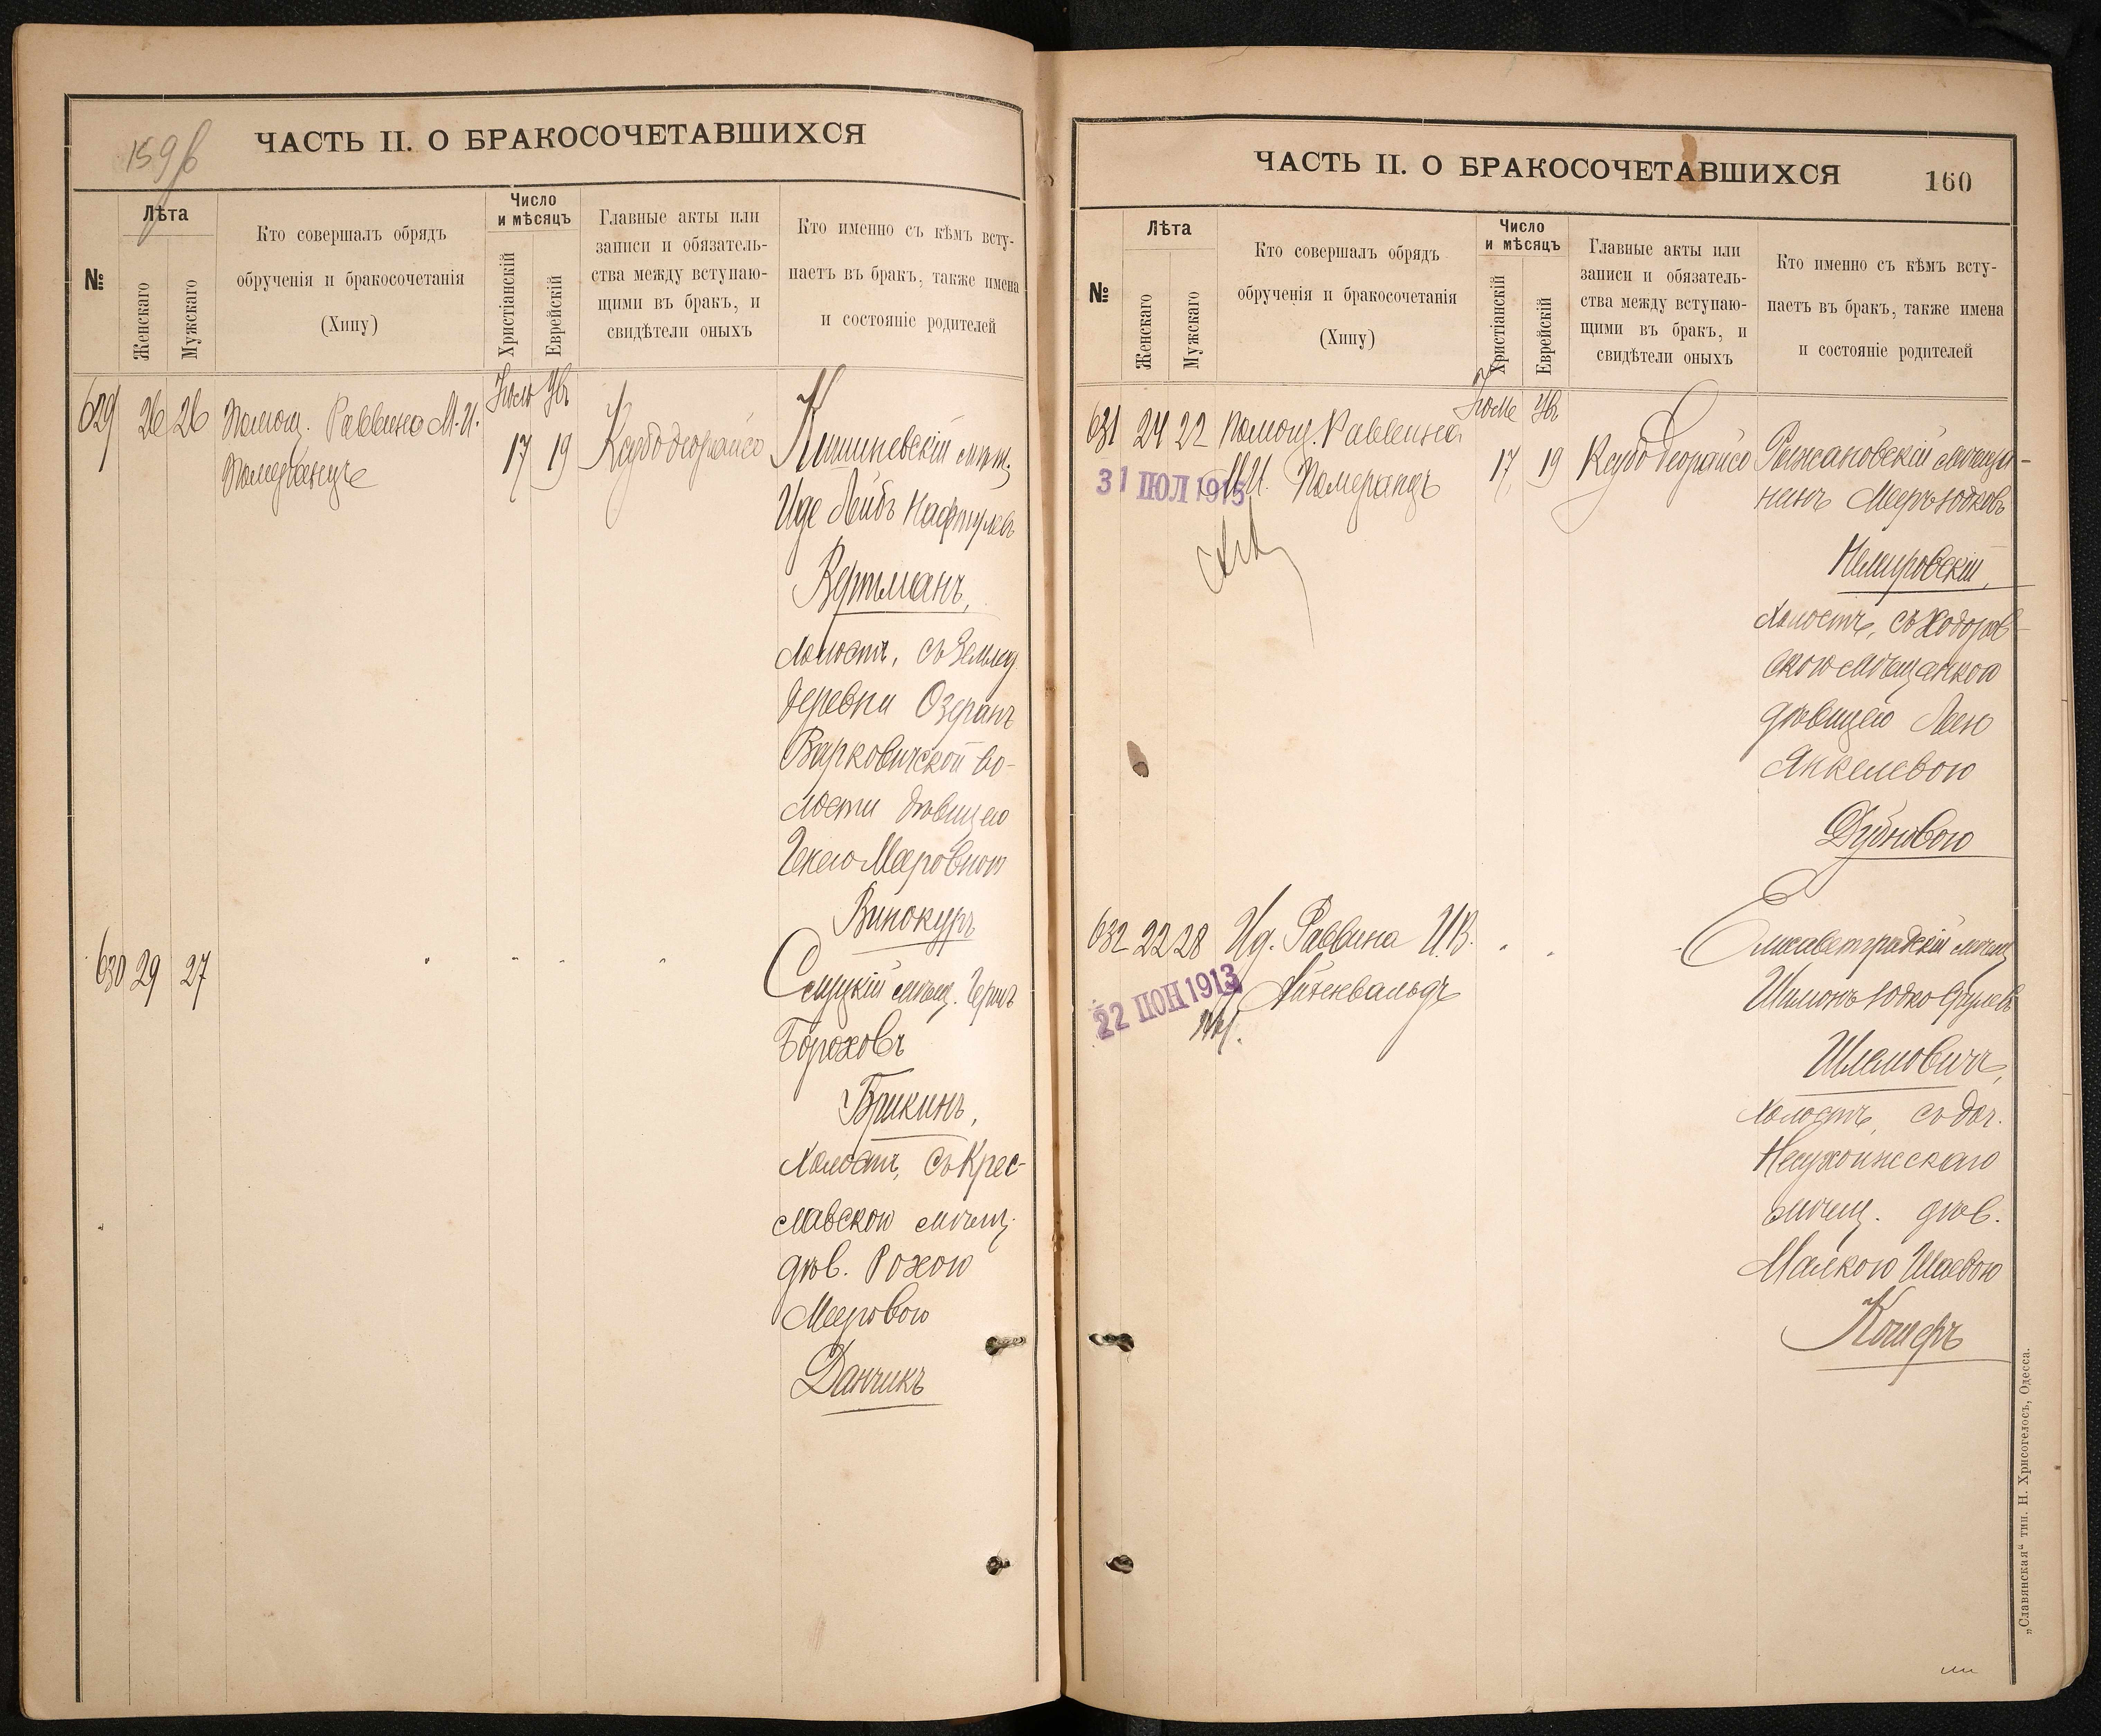 159 b
ЧАСТЬ II. О БРАКОСОЧЕТАВШИХСЯ
№
Лѣта
Женскаго
Мужскаго
Кто совершалъ обрядъ
обрученія и бракосочетанія
(Хипу)
Число
и мѣсяцъ
Христіанскій
Еврейскій
Главные акты или
записи и обязатель-
ства между вступаю-
щими въ бракъ, и
свидѣтели оныхъ
Кто именно съ кѣмъ всту-
паетъ въ бракъ, также имена
и состояніе родителей
629 26 26 Помощ. Раввина М.И.
Померанцъ
17 19
Кишиневскій мѣщ.
Иде Лейбъ Нафтулевъ
Вертманъ,
холостъ, съ Землед
деревни Озеранъ
Варковичской во-
лости дѣвицею
Мееровною
Винокуръ
630 29 27
Слуцкій мѣщ.
Бороховъ
Брикинъ,
холостъ, съ Крес-
лавскою мѣщ.
дѣв. Рохою
Мееровою
Данчикъ
ЧАСТЬ II. О БРАКОСОЧЕТАВШИХСЯ
160
№
Лѣта
Женскаго
Мужскаго
Кто совершалъ обрядъ
обрученія и бракосочетанія
(Хипу)
Число
и мѣсяцъ
Христіанскій
Еврейскій
Главные акты или
записи и обязатель-
ства между вступаю-
щими въ бракъ, и
свидѣтели оныхъ
Кто именно съ кѣмъ всту-
паетъ въ бракъ, также имена
и состояніе родителей
631 24 22 Помощ. Раввина
М.И. Померанцъ
31 ІЮЛ 1915
17 19
Рыжановскій мѣщи-
нинъ Мееръ Юдковъ
Немировскій,
холостъ, съ Ходоров-
скою мѣщанкою
дѣвицею Леею
Янкелевою
Дубновою
632 22 28 Ид. Раввина И.В.
Айхенвальдъ
22 ІЮН 1913
Елисаветградскій мѣщ
Шимонъ Юдко Сруlевъ
Шлемовичъ,
холостъ, съ доч.
Несухоижскаго
мѣщ. дѣв.
Малкою Шаевою
Кошеръ
„Славянская“ тип. Н. Хрисогелосъ, Одесса.